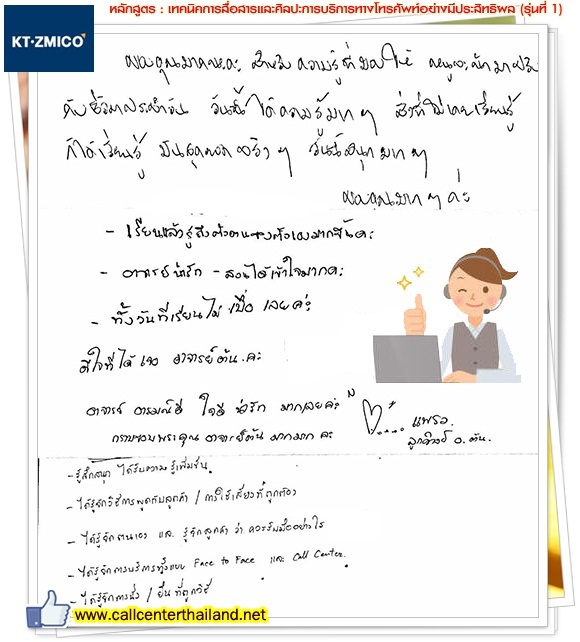 หลักสูตร : เทคนิคการสื่อสารและศิลปะการบริการทางโทรศัพท์อย่างมีประสิทธิผล (รุ่นที่ 1)
KT·ZMICO
ขอบคุณมากนะคะ สำหรับความรู้ที่มอบให้ หนูจะนำมาปรับ
กับชีวิตประจำวัน วันนี้ได้ความรู้มากๆ สิ่งที่ไม่เคยเรียนรู้
ก็ได้เรียนรู้ มันสุดยอดจริงๆ วันนี้สนุกมากๆ
ขอบคุณมากๆ ค่ะ
- เรียนแล้วรู้ถึงตัวตนของตัวเองมากขึ้นคะ
- อาจารย์น่ารัก - สอนได้เข้าใจมากคะ
- ทั้งวันที่เรียนไม่เบื่อเลยค่ะ
ดีใจที่ได้เจอ อาจารย์ต้น.คะ
อาจารย์ อารมณ์ดี ใจดี น่ารัก มากเลยค่ะ
กราบขอบพระคุณ อาจารย์ต้นมากมาก คะ
แพรว
ลูกศิษย์ อ.ต้น.
- รู้สึกสนุก ได้รับความรู้เพิ่มขึ้น
- ได้รู้จักวิธีการพูดกับลูกค้า / การใช้เสียงที่ถูกต้อง
- ได้รู้จักตนเอง และ รู้จักลูกค้า ว่า ควรรับมืออย่างไร
- ได้รู้จักการบริการทั้งแบบ Face to Face และ Call Center.
- ได้รู้จักการนั่ง / ยืนที่ถูกวิธี
www.callcenterthailand.net